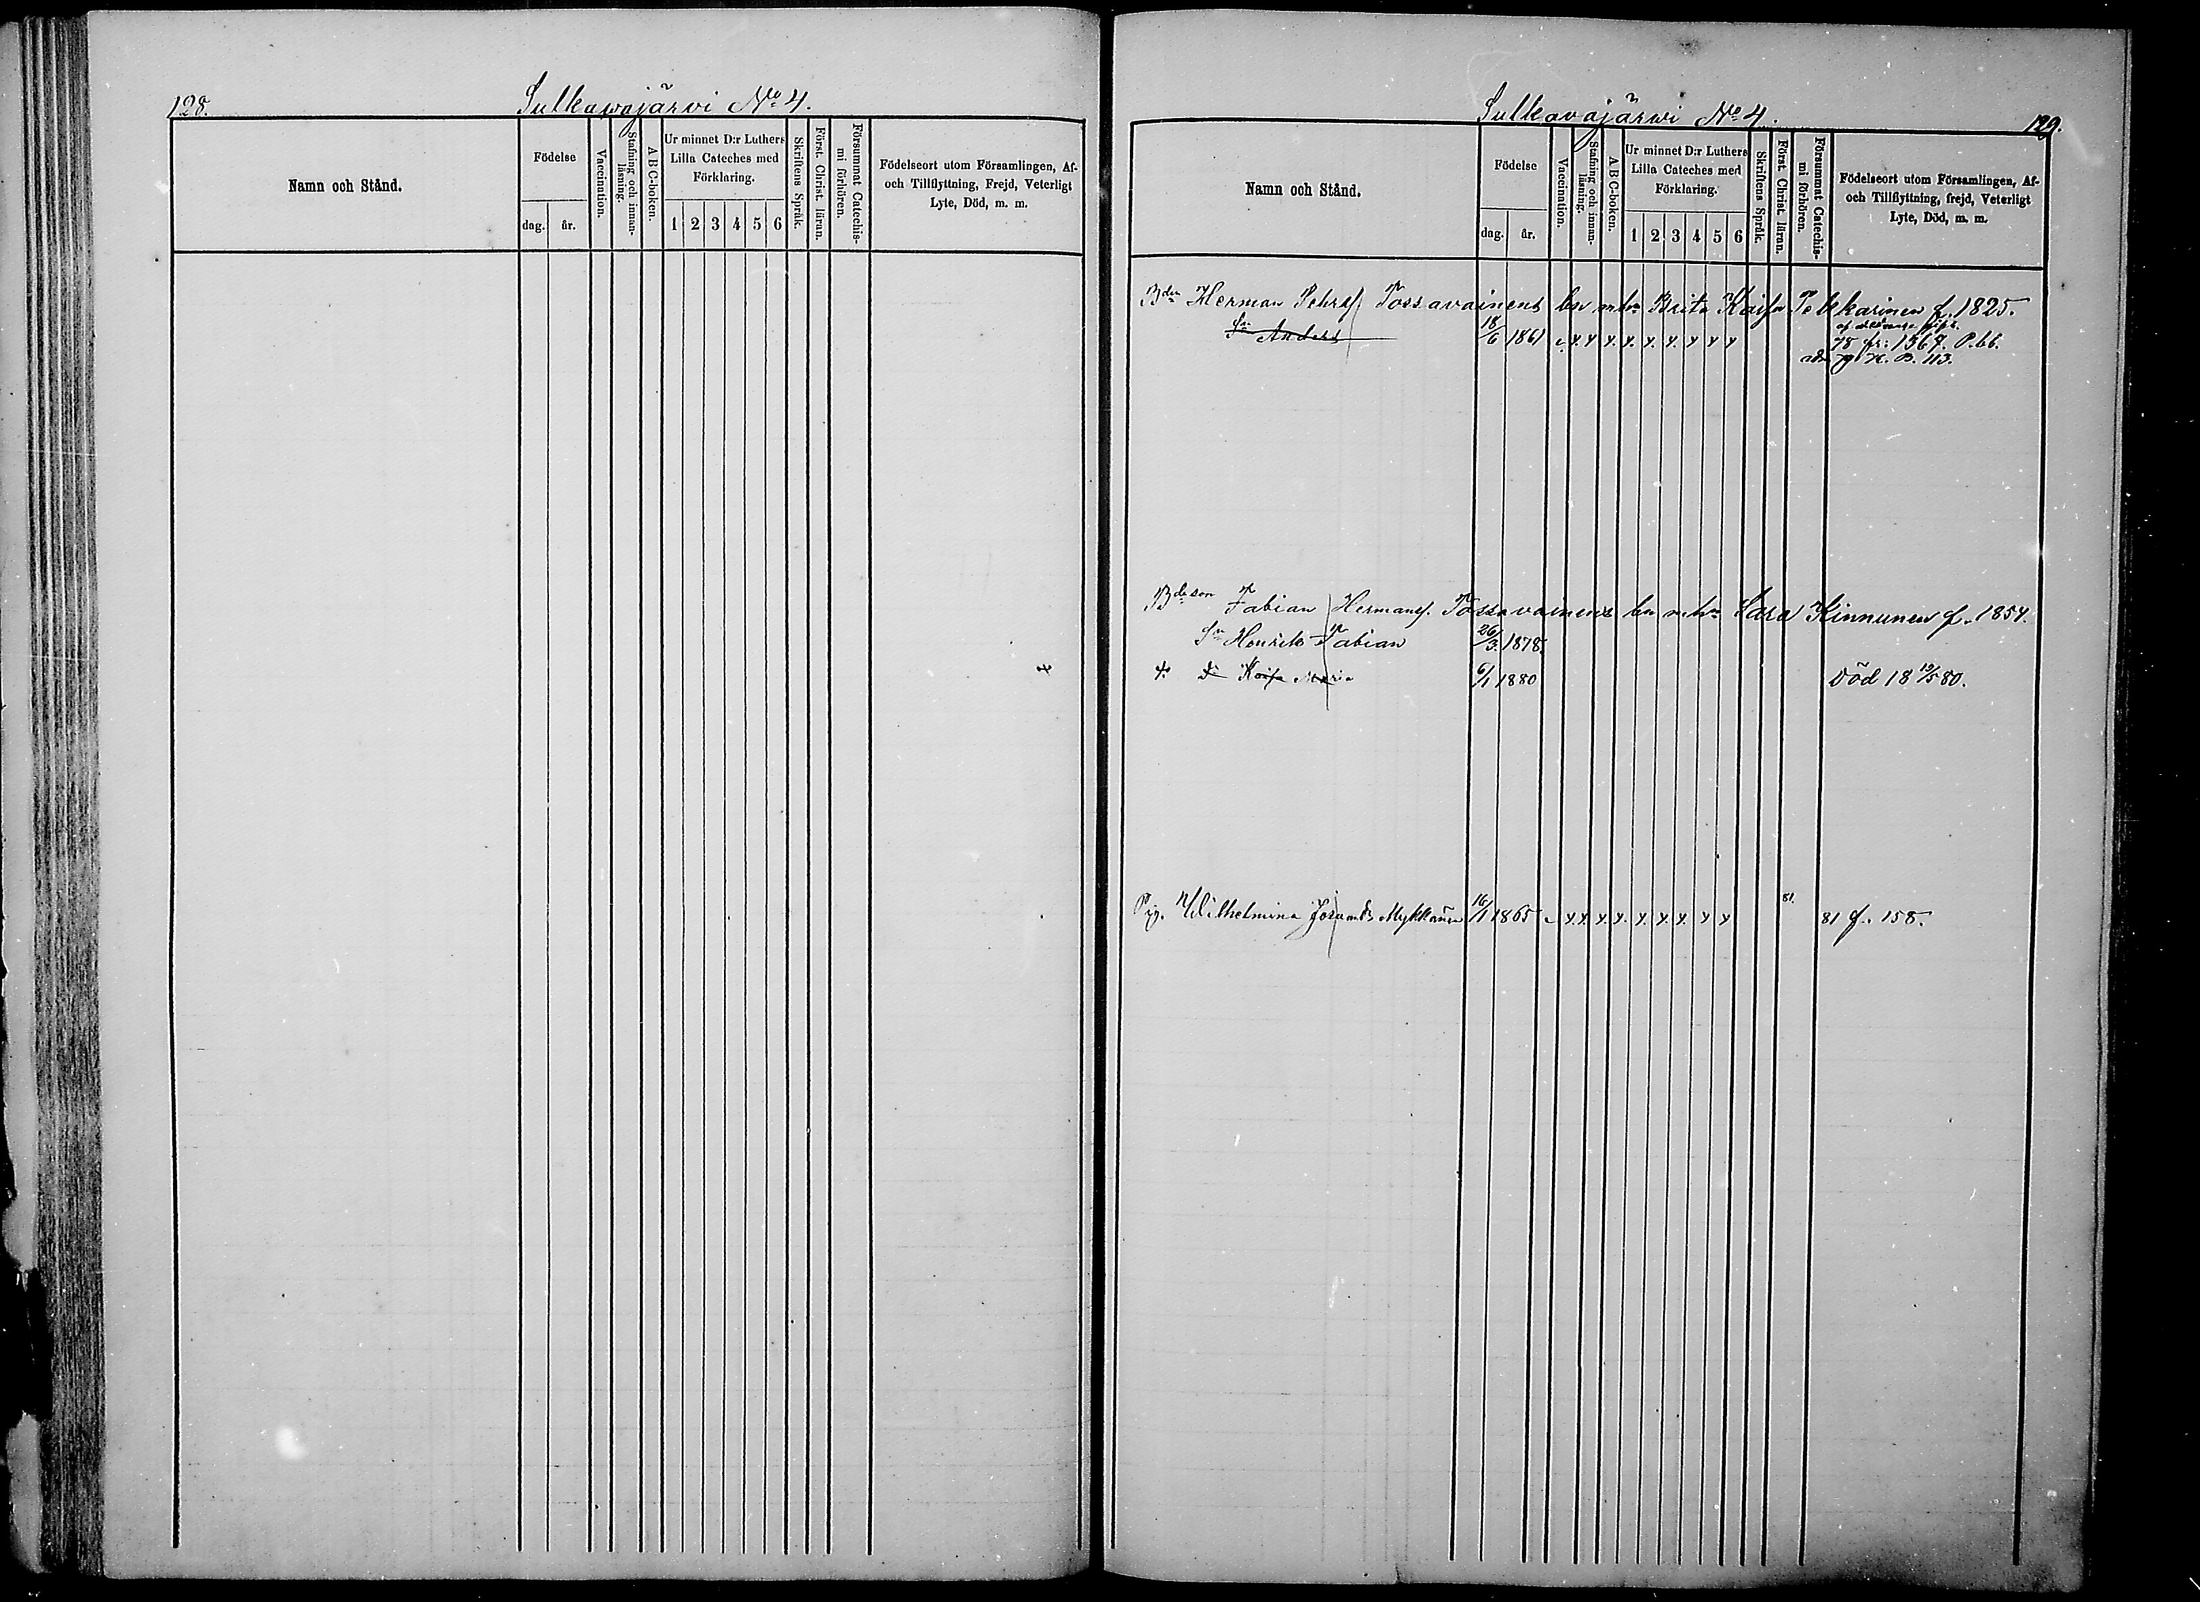 128.
Sulkawajärvi No 4.
Namn och Stånd.
Födelse
dag.
år.
Vaccination.
Stafning och innan-läsning.
A B C-boken.
Ur minnet D:r Luthers
Lilla Cateches med
Förklaring.
1 2 3 4 5 6
Skriftens Språk.
Först. Christ. läran.
Försummat Catechis-
mi förhören.
Födelseort utom Församlingen, Af-
och Tillflyttning, Frejd, Veterligt
Lyte, Död, m. m.
Sulkavajärvi No 4.
129.
Namn och Stånd.
Födelse
dag.
år.
Vaccination.
Stafning och innan-
läsning.
A B C-boken.
Ur minnet D:r Luthers
Lilla Cateches med
Förklaring.
1 2 3 4 5 6
Skriftens Språk.
Först. Christ. läran.
Försummat Catechis-
mi förhören.
Födelseort utom Församlingen, Af-
och Tillflyttning, frejd, Veterligt
Lyte, Död, m. m.
Bdn Herman Tossavainens bn m hu Brita Kaisa f. 1825.
Sn Anders 18/6 1861
P. 113.
Bdeson Fabian Hermansf. Tossavainens bn m hu Sara Kinnunen f. 1854.
Sn Henrik Fabian 26/3 1878.
D Kaisa Maria 6/1 1880 Död 18 19/5 80.
Pig. Wilhelmina Mykkänen 16/1 1865 81. 81 f. 158.